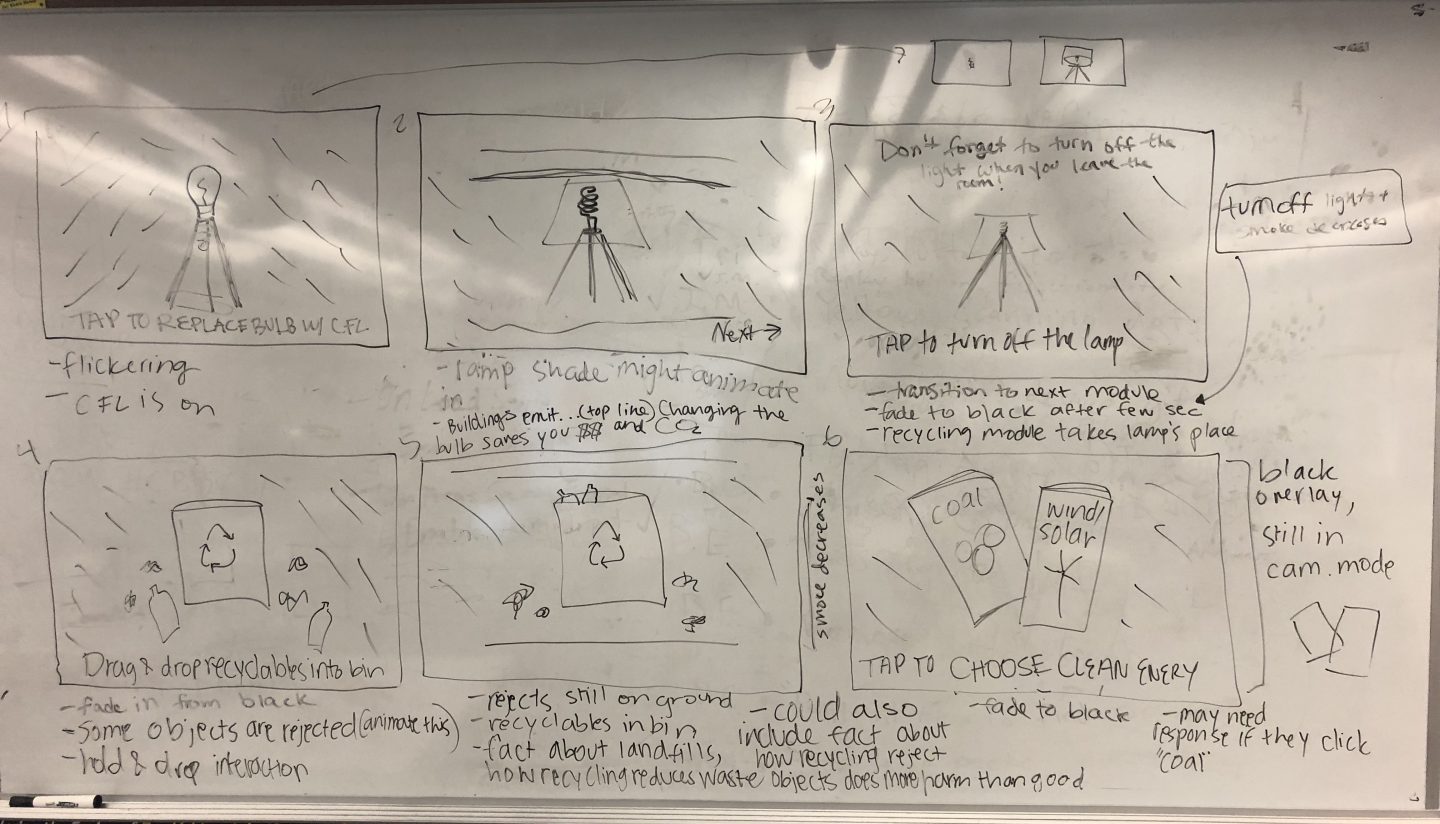 1
TAP TO REPLACE BULB W/ CFL
- flickering
- CFL is on
2
Next →
- lamp shade might animate
in
- Buildings emit...(top line) Changing the
bulb saves you $$ and CO2
3
Don't forget to turn off the
light when you leave the
room!
TAP to turn off the lamp
turn off lights +
smoke decreases
- transition to next module
- fade to black after few sec
- recycling module takes lamp's place
4
Drag & drop recyclables into bin
- fade in from black
- Some objects are rejected (animate this)
- hold & drop interaction
5
smoke decreases
- rejects still on ground
- recyclables in bin
- fact about landfills,
how recycling reduces waste
- could also
include fact about
how recycling reject
objects does more harm than good
6
coal
wind/
solar
TAP TO CHOOSE CLEAN ENERY
- fade to black
- may need
response if they click
"coal"
black
overlay,
still in
cam. mode